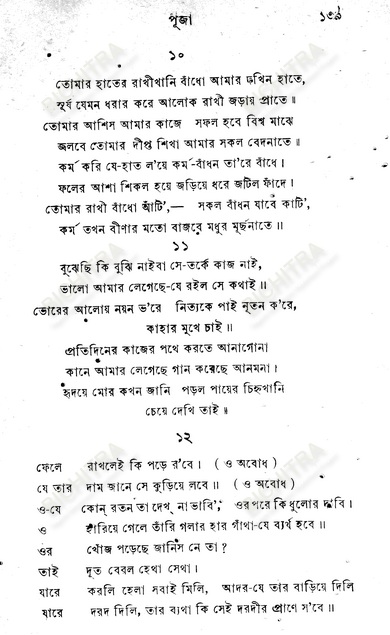 পূজা ১৩৯
১০
তোমার হাতের রাখীখানি বাঁধো আমার দখিন হাতে,
সূর্য যেমন ধরার করে আলোক রাখী জড়ায় প্রাতে॥
তোমার আশিস আমার কাজে সফল হবে বিশ্ব মাঝে
জলবে তোমার দীপ্ত শিখা আমার সকল বেদনাতে॥
কর্ম করি যে-হাত ল'য়ে কর্ম-বাঁধন তা'রে বাঁধে।
ফলের আশা শিকল হয়ে জড়িয়ে ধরে জটিল ফাঁদে।
তোমার রাখী বাঁধো আঁটি',— সকল বাঁধন যাবে কাটি',
কর্ম তখন বীণার মতো বাজবে মধুর মূর্ছনাতে॥
১১
বুঝেছি কি বুঝি নাইবা সে-তর্কে কাজ নাই,
ভালো আমার লেগেছে-যে রইল সে কথাই॥
ভোরের আলোয় নয়ন ভ'রে নিত্যকে পাই নূতন ক'রে,
কাহার মুখে চাই॥
প্রতিদিনের কাজের পথে করতে আনাগোনা
কানে আমার লেগেছে গান করেছে আনমনা।
হৃদয়ে মোর কখন জানি পড়ল পায়ের চিহ্নখানি
চেয়ে দেখি তাই॥
১২
ফেলে রাখলেই কি পড়ে র'বে। (ও অবোধ)
যে তার দাম জানে সে কুড়িয়ে লবে॥ (ও অবোধ)
ও-যে কোন্ রতন তা দেখ্ না ভাবি', ওর পরে কি ধুলোর দাবি।
ও হারিয়ে গেলে তাঁরি গলার হার গাঁথা-যে ব্যর্থ হবে॥
ওর খোঁজ পড়েছে জানিস নে তা?
তাই দূত বেরল হেথা সেথা।
যারে করলি হেলা সবাই মিলি, আদর-যে তার বাড়িয়ে দিলি
যারে দরদ দিলি, তার ব্যথা কি সেই দরদীর প্রাণে স'বে॥